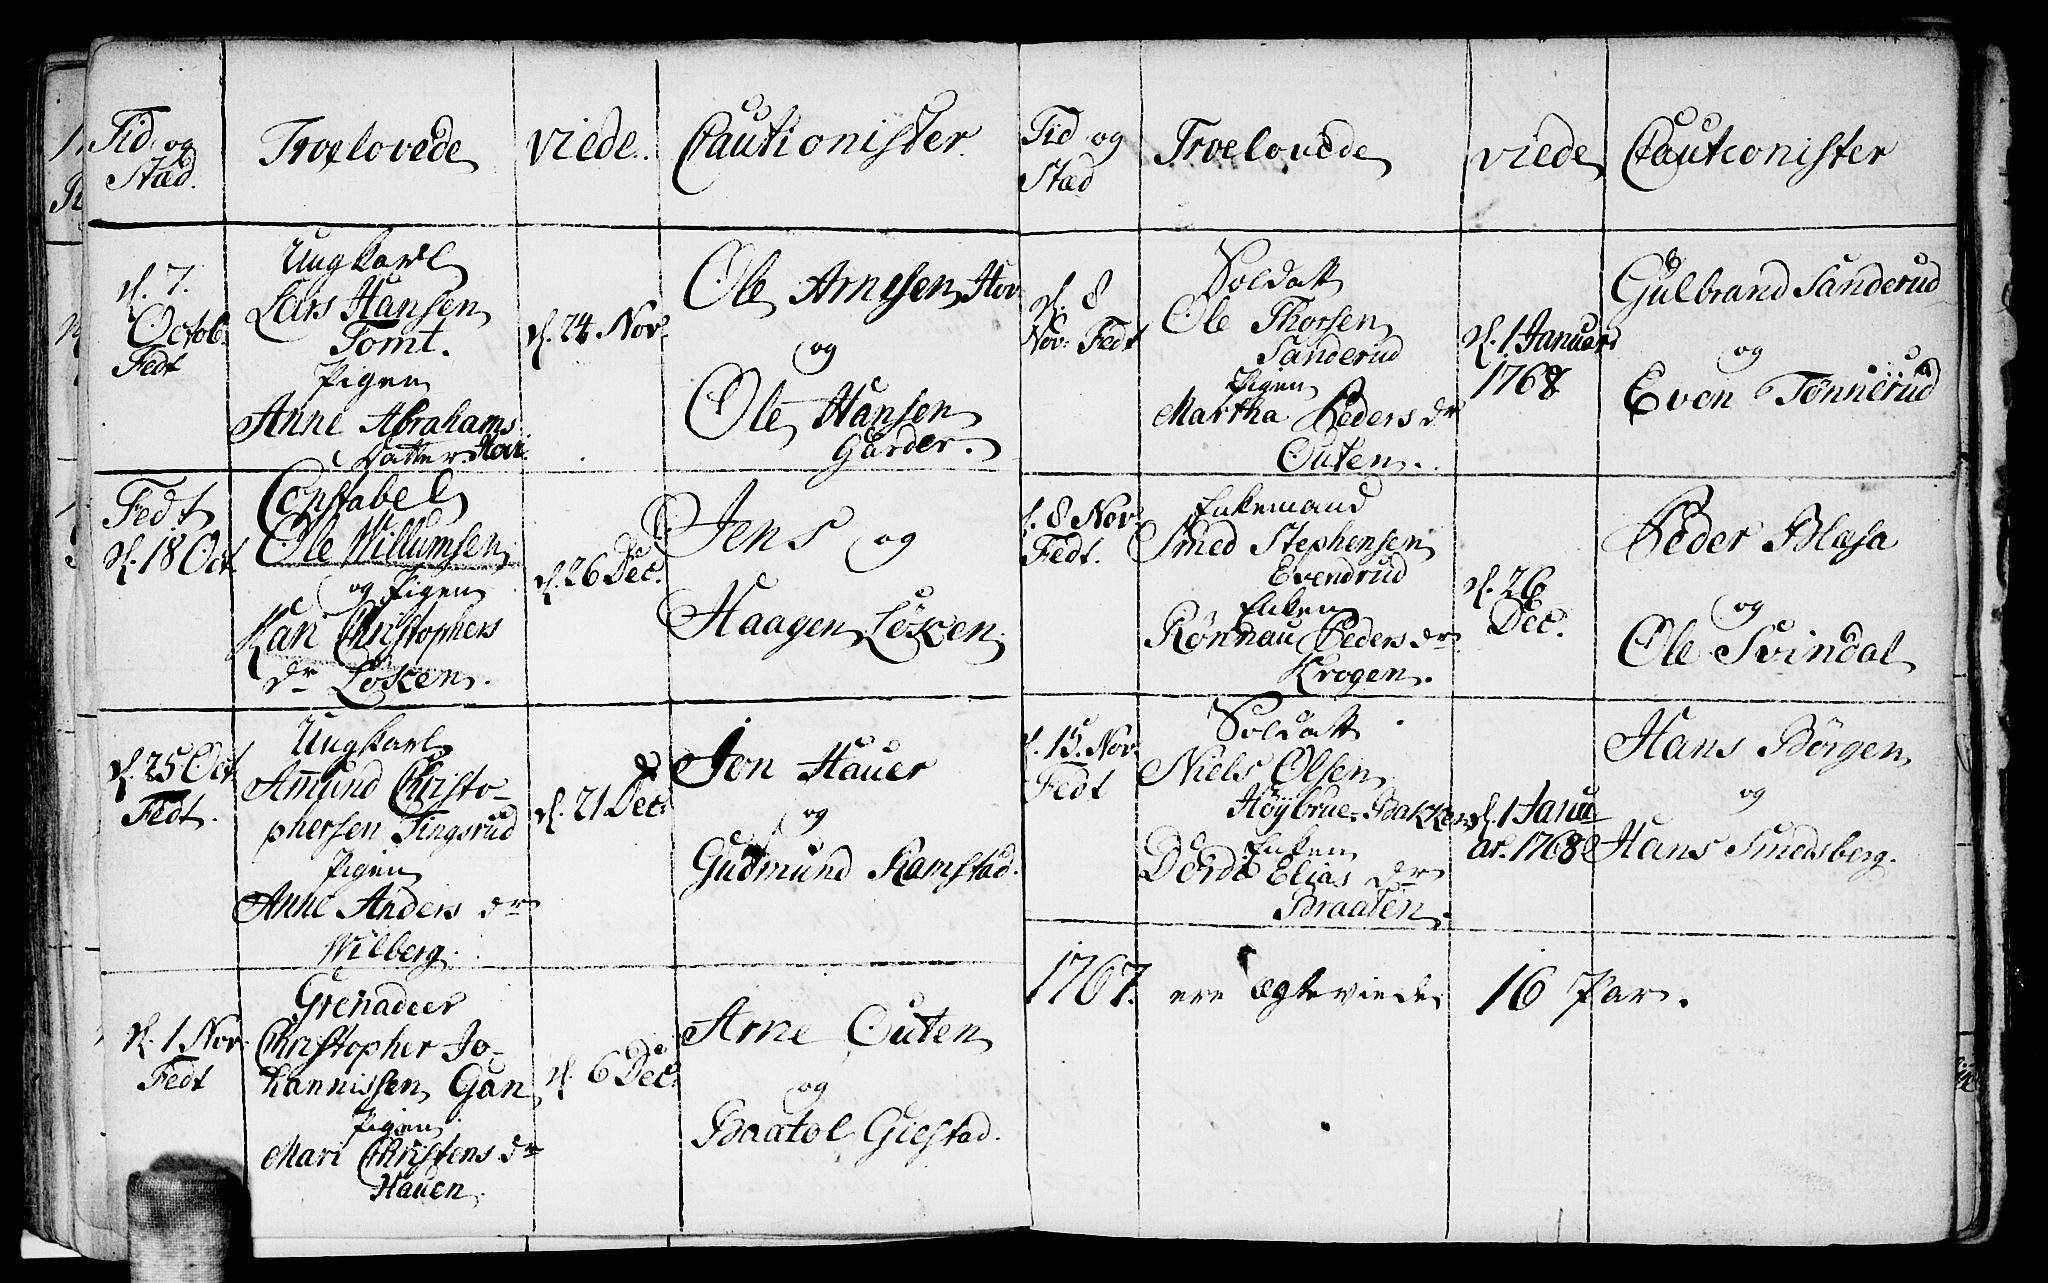 Tid og
Stæd.
Troelovede
viede.
Cautionister.
d. 7.
Octob.
Fedt
Ungkarl
Lars Hansen
Tomt.
Pigen
Anne Abrahams
Datter Hov.
d. 24 Nov.
Ole Arnesen Hov
og
Ole Hansen
Garder.
Fedt
d. 18 Oct.
Constabel
Ole Willumsen
og Pigen
Kari Christophers
dr Løken.
d. 26 Dec.
Jens og
Haagen Løken.
d. 25 Oct
Fedt.
Ungkarl
Amund Christo-
phersen Tingsrud
Pigen
Anne Anders dr
Wilberg.
d. 21 Dec.
Jon Hauer
og
Gudmund Ramstad.
d. 1 Nov.
Fedt
Grenadeer
Christopher Jo-
hannissen Gan
Pigen
Mari Christens dr
Hauen.
d. 6 Dec.
Arne Outen
og
Baatol Gielstad.
Tid og
Stæd
Troelovede
viede
Cautionister
d. 8
Nov: Fedt
Soldatt
Ole Thorsen
Sanderud
Pigen
Martha Peders dr
Outen.
d. 1 Januari
1768
Gulbrand Sanderud
og
Even Tønnerud
d. 8 Nov.
Fedt.
Enkemand
Smed Stephensen
Evendrud
Enken
Rønnau Peders dr
Krogen.
d. 26
Dec.
Peder Blasa
og
Ole Svindal
d. 15. Nov.
Fedt
Soldatt
Niels Olsen
Høybrue-Bakken
Enken
Dorde Elias dr
Braaten.
d. 1 Janu-
ar. 1768
Hans Børgen
og
Hans Smedsberg.
1767. ere Ægteviede 16 Par.